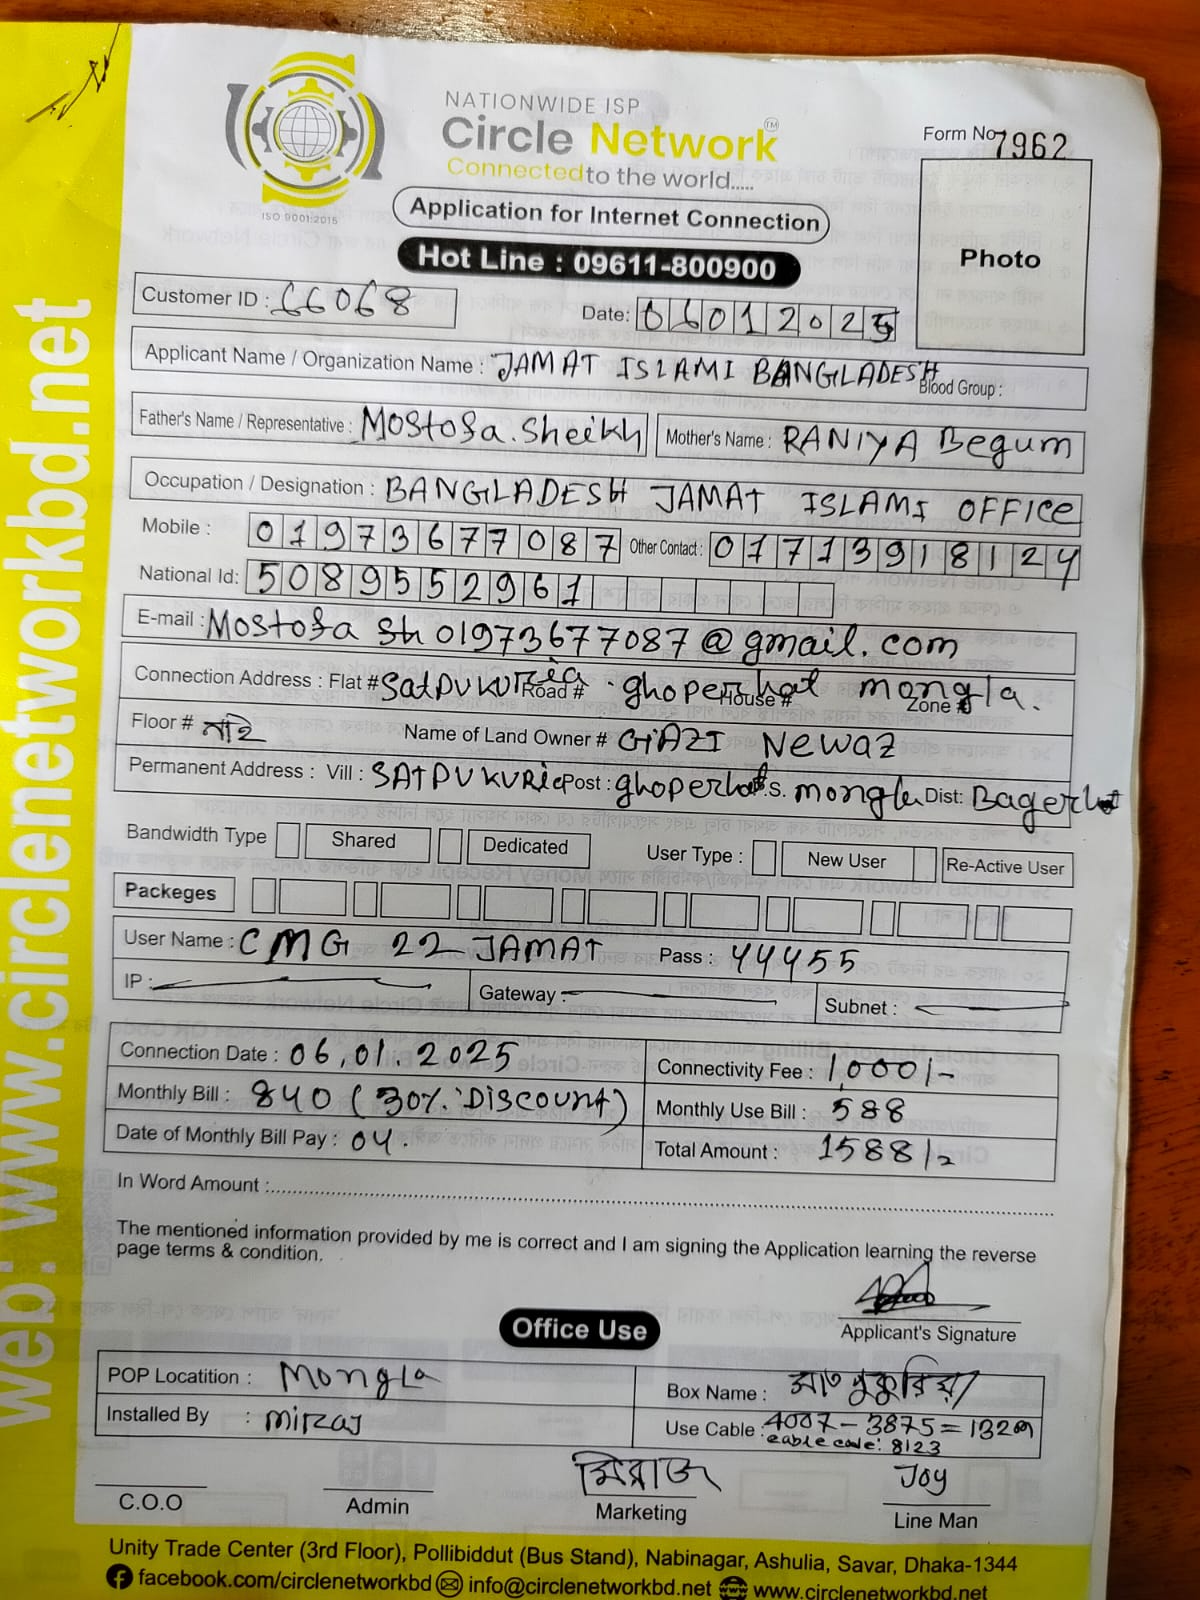 NATIONWIDE ISP
Circle Network TM
Connected to the world.....
ISO 9001:2015
Form No 7962
Photo
Application for Internet Connection
Hot Line : 09611-800900
web: www.circlenetworkbd.net
Customer ID : 66068 Date: 06012025
Applicant Name / Organization Name : JAMAT ISLAMI BANGLADESH Blood Group :
Father's Name / Representative : Mostofa. Sheikh Mother's Name : RANIYA Begum
Occupation / Designation : BANGLADESH JAMAT ISLAMI OFFICE
Mobile : 01973677087 Other Contact : 01713918124
National Id: 5089552961
E-mail : Mostofa Sh01973677087@gmail.com
Connection Address : Flat # SatPUKUria Road # ghoperhat House # mongla. Zone #
Floor # নাই Name of Land Owner # GAZI Newaz
Permanent Address : Vill : SATPUKURia Post : ghoperhat P.S. mongla Dist: Bagerhat
Bandwidth Type Shared Dedicated User Type : New User Re-Active User
Packeges
User Name : CMG 22 JAMAT Pass : 44455
IP : Gateway : Subnet :
Connection Date : 06.01.2025 Connectivity Fee : 1,000/-
Monthly Bill : 840 (30% DISCOUNT) Monthly Use Bill : 588
Date of Monthly Bill Pay : 04. Total Amount : 1588/-
In Word Amount :
The mentioned information provided by me is correct and I am signing the Application learning the reverse
page terms & condition.
Applicant's Signature
Office Use
POP Locatition : MongLa Box Name : সাতপুকুরিয়া
Installed By : mirzaj Use Cable : 4007-3875=132m
cable code: 8123
মিরাজ Joy
C.O.O Admin Marketing Line Man
Unity Trade Center (3rd Floor), Pollibiddut (Bus Stand), Nabinagar, Ashulia, Savar, Dhaka-1344
facebook.com/circlenetworkbd info@circlenetworkbd.net www.circlenetworkbd.net